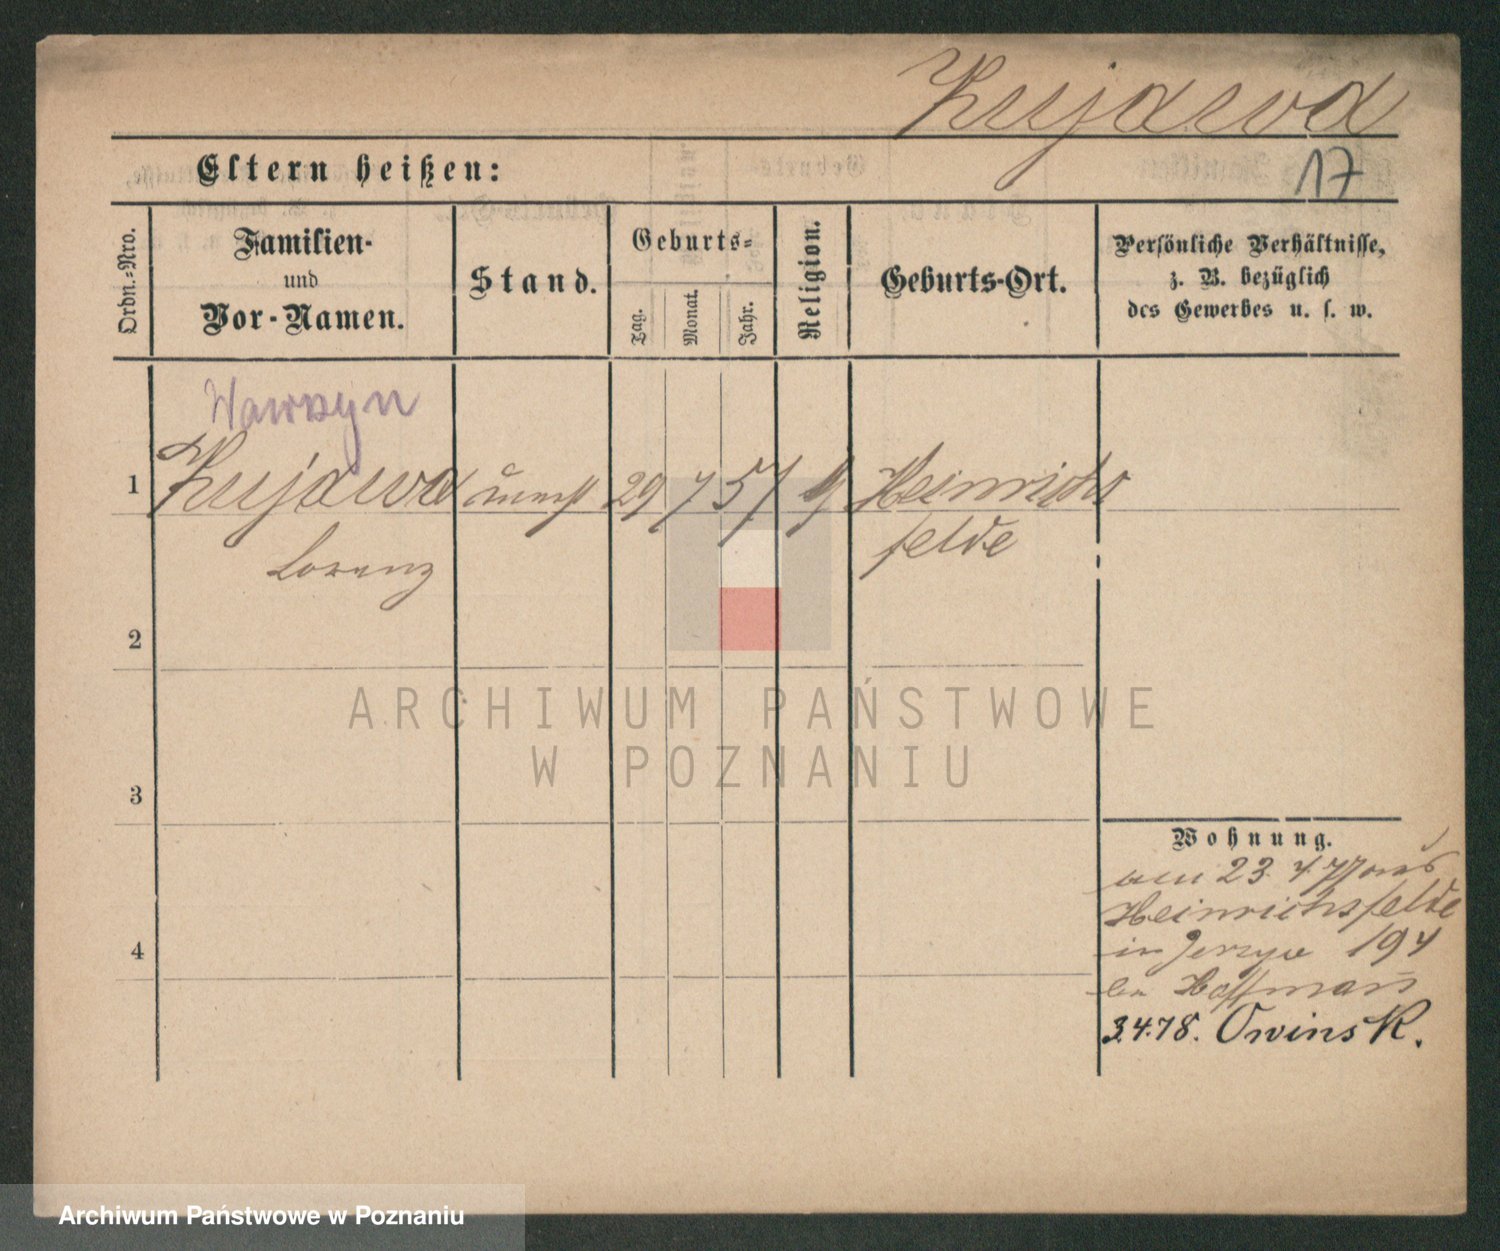 Kujawa
17
Eltern heißen:
Ordn.-Nro.
Familien-
und
Vor-Namen.
Stand.
Geburts-
Tag.
Monat.
Jahr.
Religion.
Geburts-Ort.
Persönliche Verhältnisse,
z. B. bezüglich
des Gewerbes u. s. w.
Wawrzyn
1 Kujawa 29 7 51 Heinrichs
felde
Lorenz
2
3
4
ARCHIWUM PAŃSTWOWE
W POZNANIU
Wohnung.
23. 4. 77
Heinrichsfelde
in Jerzyce 194
Hoffmann
3.4.78. Owinsk.
Archiwum Państwowe w Poznaniu